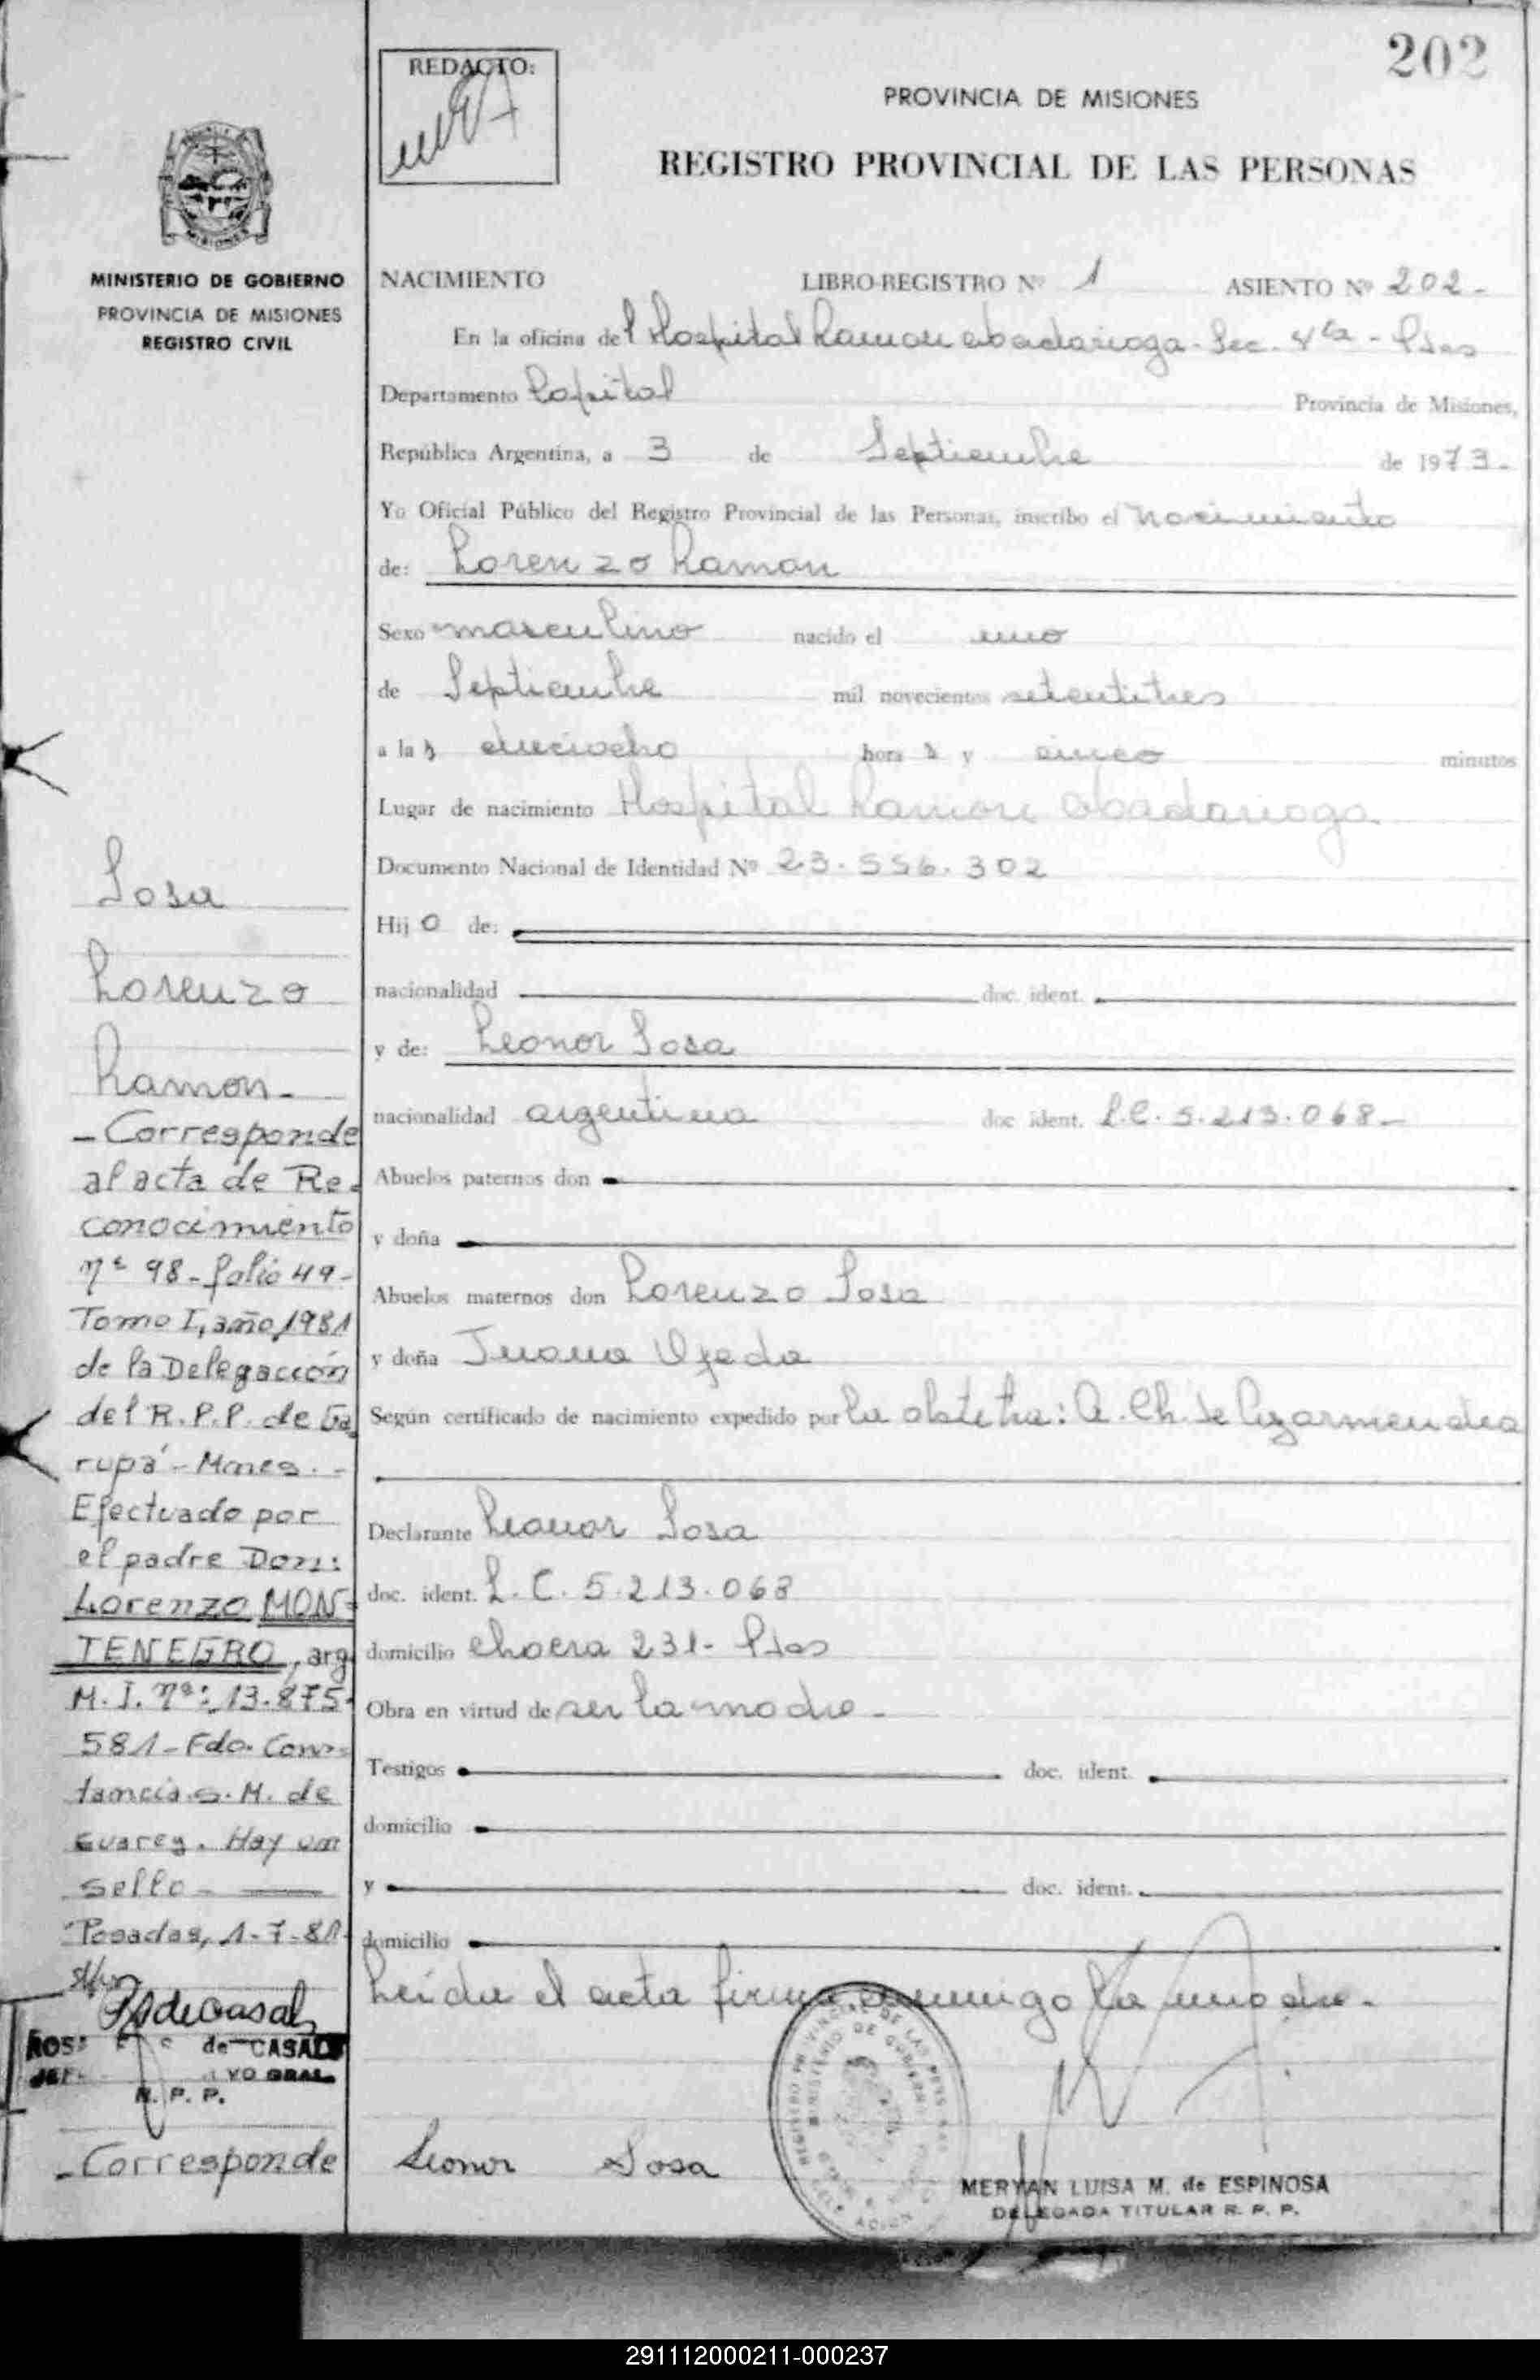 202
REDACTO:
PROVINCIA DE MISIONES
REGISTRO PROVINCIAL DE LAS PERSONAS
MISIONES
MINISTERIO DE GOBIERNO
PROVINCIA DE MISIONES
REGISTRO CIVIL
NACIMIENTO LIBRO-REGISTRO Nº 1 ASIENTO Nº 202-
En la oficina del Hospital Ramon abadarioga - Sec. 4ta - Pdas
Departamento Capital Provincia de Misiones,
República Argentina, a 3 de Septiembre de 1973-
Yo Oficial Público del Registro Provincial de las Personas, inscribo el nacimiento
de: Lorenzo Ramon
Sexo masculino nacido el uno
de Septiembre mil novecientos setentitres
a las dieciocho horas y cinco minutos
Lugar de nacimiento Hospital Ramon abadarioga
Documento Nacional de Identidad Nº 23.556.302
Hijo de:
nacionalidad doc. ident.
y de: Leonor Sosa
nacionalidad argentina doc ident. L.C. 5.213.068-
Abuelos paternos don
y doña
Abuelos maternos don Lorenzo Sosa
y doña Juana Ojeda
Según certificado de nacimiento expedido por la obstetra: A. Ch. de
Declarante Leonor Sosa
doc. ident. L.C. 5.213.068
domicilio chacra 231- Pdas
Obra en virtud de ser la madre-
Testigos doc. ident.
domicilio
y doc. ident.
domicilio
Leida el acta firma conmigo la madre.
Leonor Sosa
MERYAN LUISA M. de ESPINOSA
DELEGADA TITULAR R. P. P.
Sosa
Lorenzo
Ramon-
-Corresponde
al acta de Re-
conocimiento
nº 98-folio 49-
Tomo I, año 1981
de la Delegación
del R.P.P. de Ga
rupá-Mnes.-
Efectuado por
el padre Don:
Lorenzo MON-
TENEGRO, arg
M.I. nº: 13.875.
581-Fdo. Cons-
tancia S. M. de
Suarez. Hay un
sello-
Posadas, 1-7-81-
de CASALS
VO GRAL.
R. P. P.
-Corresponde
291112000211-000237